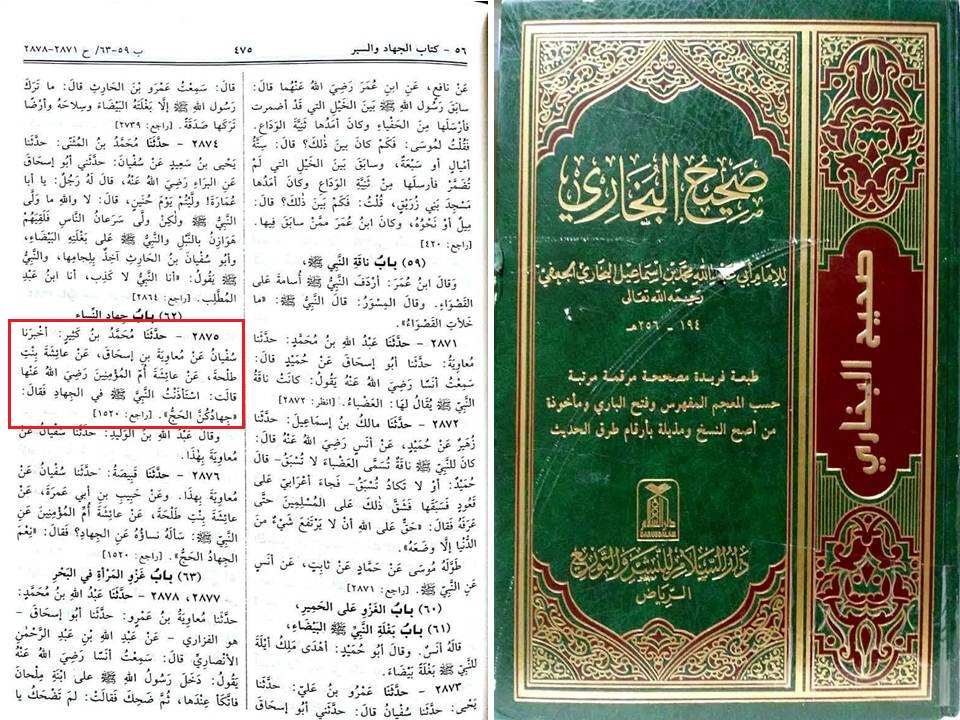 ٥٦ - كتاب الجهاد والسير
٤٧٥
ب ٥٩-٦٣/ ح ٢٨٧١-٢٨٧٨
عَنْ نافِعٍ، عَنِ ابنِ عُمَرَ رَضِيَ اللهُ عَنْهُما قالَ:
سابَقَ رَسُولُ اللهِ ﷺ بَينَ الخَيْلِ التي قَدْ أُضمرت
فأرْسَلَها مِنَ الحَفْياءِ وكانَ أمَدُها ثَنِيَّةَ الوَدَاعِ.
فَقُلْتُ لمُوسَى: فَكَمْ كانَ بَينَ ذلكَ؟ قالَ: سِتَّةُ
أمْيالٍ أو سَبْعَةٌ، وسابَقَ بَينَ الخَيلِ التي لَمْ
تُضَمَّرْ فأرسلَها مِنْ ثَنِيَّةِ الوَدَاعِ وكانَ أمَدُها
مَسْجِدَ بَنِي زُرَيْقٍ، قُلْتُ: فَكَمْ بَينَ ذلكَ؟ قالَ:
مِيلٌ أوْ نَحْوُهُ، وكانَ ابنُ عمَرَ ممَّنْ سابَقَ فِيها.
[راجع: ٤٢٠]
(٥٩) بابُ ناقَةِ النَّبِيِّ ﷺ،
وَقالَ ابنُ عُمَرَ: أرْدَفَ النَّبِيُّ ﷺ أُسامةَ على
القَصْوَاءِ. وقالَ المِسْوَرُ: قالَ النَّبِيُّ ﷺ: «ما
خَلأتِ القَصْوَاءُ».
٢٨٧١ - حَدَّثَنا عَبْدُ اللهِ بنُ مُحَمَّدٍ: حدَّثَنا
مُعاوِيَةُ: حدَّثَنا أبُو إسحَاقَ عَنْ حُمَيْدٍ قالَ:
سَمِعتُ أنَسًا رَضِيَ اللهُ عَنْهُ يَقُولُ: كانَتْ ناقَةُ
النَّبِيِّ ﷺ يُقالُ لهَا: العَضْباءُ. [انظر: ٢٨٧٢]
٢٨٧٢ - حَدَّثَنا مالكُ بنُ إسْماعِيلَ: حدَّثَنا
زُهَيْرٌ عَنْ حُمَيْدٍ، عَنْ أنَسٍ رَضِيَ اللهُ عَنْهُ قالَ:
كانَ للنَّبِيِّ ﷺ ناقَةٌ تُسَمَّى العَضْباءَ لا تُسْبَقُ- قالَ
حُمَيْدٌ: أوْ لا تَكادُ تُسْبَقُ- فَجاءَ أعْرَابِيٌّ عَلى
قَعُودٍ فَسَبَقَها فَشَقَّ ذلكَ عَلى المُسْلِمِينَ حتَّى
عَرَفَهُ فَقالَ: «حَقٌّ عَلى اللهِ أنْ لا يَرْتَفِعَ شَيْءٌ مِنَ
الدُّنْيا إلَّا وضَعَهُ».
طَوَّلَهُ مُوسَى عَنْ حَمَّادٍ عَنْ ثابِتٍ، عَنْ أنَسٍ
عَنِ النَّبِيِّ ﷺ. [راجع: ٢٨٧١]
(٦٠) بابُ الغَزْوِ عَلى الحَمِيرِ،
(٦١) بابُ بَغْلَةِ النَّبِيِّ ﷺ البَيْضَاءِ،
قالَهُ أنَسٌ. وقالَ أبُو حُمَيْدٍ: أهْدَى مَلِكُ أيْلَةَ
للنَّبِيِّ ﷺ بَغْلَةً بَيْضَاءَ.
٢٨٧٣ - حَدَّثَنا عَمْرُو بنُ عَليّ: حدَّثَنا
يَحْيَى: حدَّثَنا سُفْيانُ قالَ: حدَّثَنِي أبُو إسْحاقَ
قالَ: سَمِعْتُ عَمْرَو بْنَ الحَارِثِ قالَ: ما تَرَكَ
رَسُولُ اللهِ ﷺ إلَّا بَغْلَتَهُ البَيْضَاءَ وسِلاحَهُ وأرْضًا
تَرَكَها صَدَقَةً. [راجع: ٢٧٣٩]
٢٨٧٤ - حَدَّثَنا مُحَمَّدُ بنُ المُثَنَّى: حدَّثَنا
يَحْيَى بنُ سَعِيدٍ عَنْ سُفْيانَ: حدَّثَنِي أبُو إسحَاقَ
عَنِ البَرَاءِ رَضِيَ اللهُ عَنْهُ، قالَ لَهُ رَجُلٌ: يا أبا
عُمَارَةَ! ولَّيْتُمْ يَوْمَ حُنَيْنٍ، قالَ: لا واللهِ ما وَلَّى
النَّبِيُّ ﷺ ولٰكِنْ ولَّى سَرَعانُ النَّاسِ فَلَقِيَهُمْ
هَوَازِنُ بالنَّبْلِ والنَّبِيُّ ﷺ عَلى بَغْلَتِهِ البَيْضَاءِ،
وأبُو سُفْيانَ بنُ الحَارِثِ آخِذٌ بِلِجامِها، والنَّبِيُّ
ﷺ يَقُولُ: «أنا النَّبِيُّ لا كَذِب، أنا ابنُ عَبْدِ
المُطَّلِب. [راجع: ٢٨٦٤]
(٦٢) بابُ جِهادِ النِّساء
٢٨٧٥ - حدَّثَنَا مُحَمَّدُ بنُ كَثِيرٍ: أخْبرَنا
سُفْيانُ عَنْ مُعاوِيَةَ بنِ إسحَاقَ، عَنْ عائِشَةَ بِنْتِ
طَلْحَةَ، عَنْ عائِشَةَ أُمِّ المُؤْمِنِينَ رَضِيَ اللهُ عَنْها
قالَت: اسْتَأذَنْتُ النَّبِيَّ ﷺ في الجِهادِ فَقالَ:
«جِهادُكُنَّ الحَجُّ». [راجع: ١٥٢٠]
وقالَ عَبْدُ اللهِ بنُ الوَلِيدِ: حدَّثَنا سُفْيانُ عَنْ
مُعاوِيَةَ بِهٰذَا.
٢٨٧٦ - حَدَّثَنَا قَبِيصَةُ: حدَّثَنا سُفْيانُ عَنْ
مُعاوِيَةَ بهذا. وعَنْ حَبِيبِ بنِ أبي عَمرَةَ، عَنْ
عائِشَةَ بِنْتِ طَلْحَةَ، عَنْ عائِشَةَ أُمِّ المُؤْمِنِينَ عَنِ
النَّبِيِّ ﷺ: سَألَهُ نِساؤُهُ عَنِ الجِهادِ؟ فَقالَ: «نِعْمَ
الجِهادُ الحَجُّ». [راجع: ١٥٢٠]
(٦٣) بابُ غَزْوِ المَرْأةِ في البَحْرِ
٢٨٧٧، ٢٨٧٨ - حَدَّثَنا عَبْدُ اللهِ بْنُ مُحَمَّدٍ:
حدَّثَنا مُعَاوِيَةُ بْنُ عَمْرٍو: حدَّثَنا أبُو إسْحَاقَ -
هو الفزاري - عَنْ عَبْدِ اللهِ بْنِ عَبْدِ الرَّحْمٰنِ
الأنْصَارِيِّ قالَ: سَمِعْتُ أنَسًا رَضِيَ اللهُ عَنْهُ
يَقُولُ: دَخَلَ رَسُولُ اللهِ ﷺ عَلى ابْنَةِ مِلْحانَ
فاتَّكَأ عِنْدَها، ثُمَّ ضَحِكَ فَقالَتْ: لِمَ تَضْحَكُ يا
صَحِيحُ البُخَارِي
للإمام أبي عبد الله محمد بن إسماعيل البخاري الجعفي
رحمه الله تعالى
١٩٤ - ٢٥٦ هـ
طبعة فريدة مصححة مرقمة مرتبة
حسب المعجم المفهرس وفتح الباري ومأخوذة
من أصح النسخ ومذيلة بأرقام طرق الحديث
دار السلام
DARUSSALAM
دار السلام للنشر والتوزيع
الرياض
صحيح البخاري